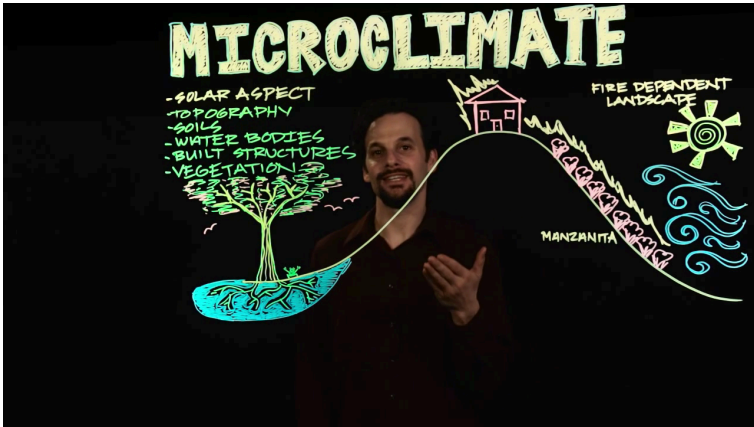 MICROCLIMATE
-SOLAR ASPECT
-TOPOGRAPHY
-SOILS
-WATER BODIES
-BUILT STRUCTURES
-VEGETATION
FIRE DEPENDENT
LANDSCAPE
MANZANITA